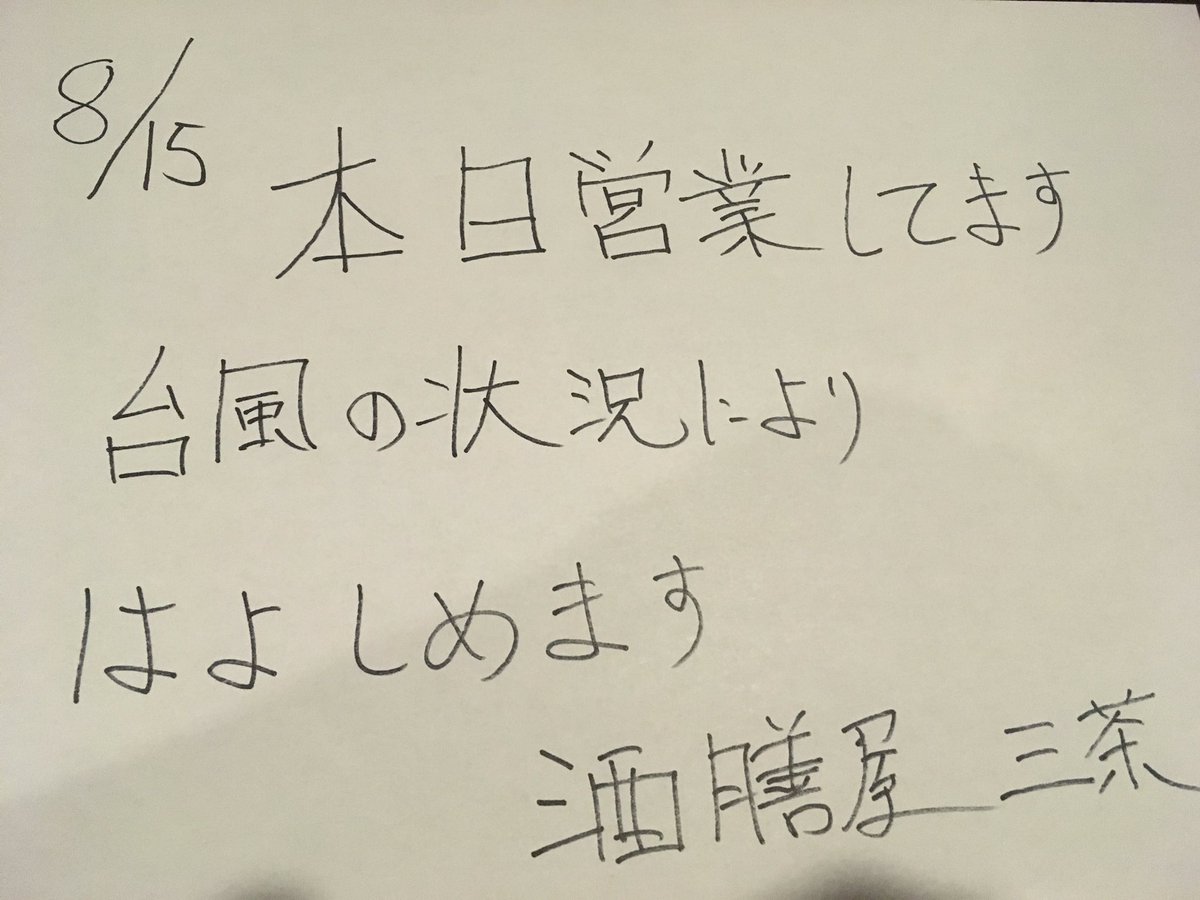 8/15
本日営業してます
台風の状況により
はよしめます
酒膳屋 三茶